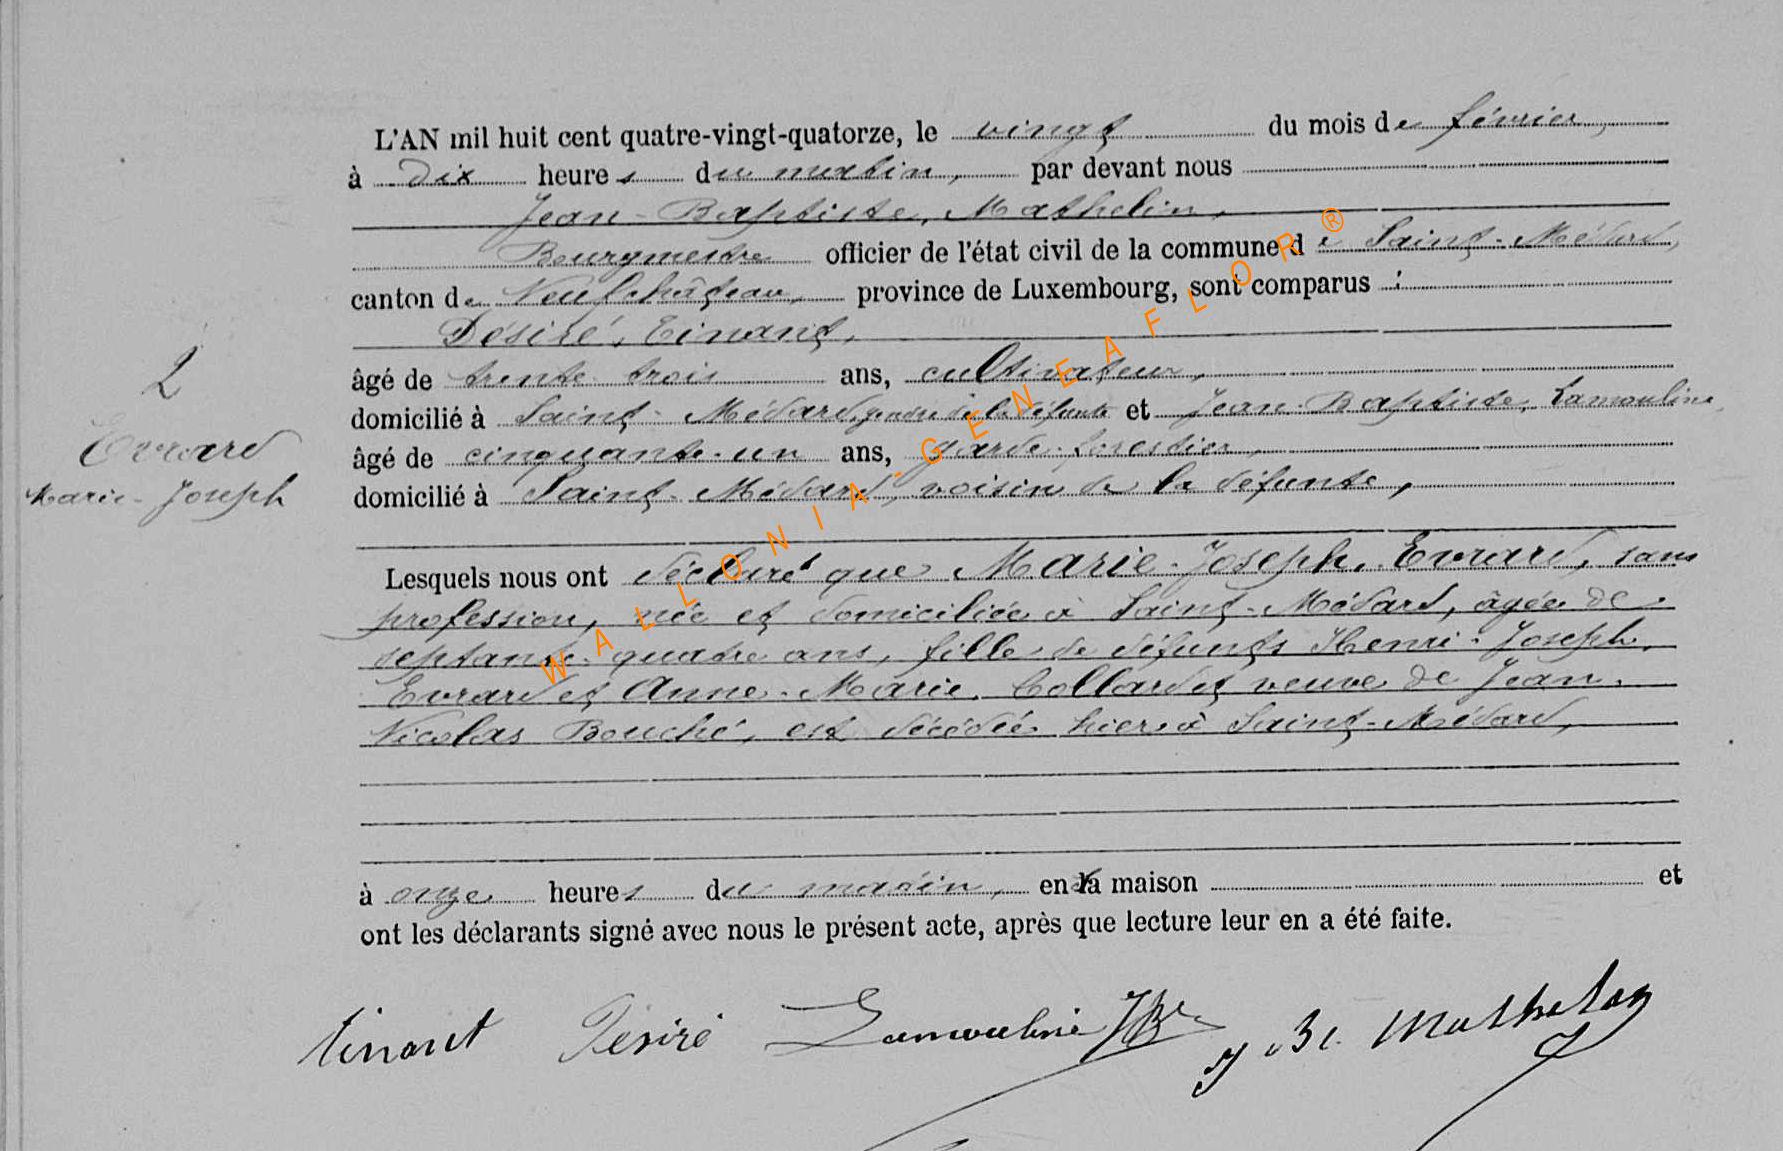 L'AN mil huit cent quatre-vingt-quatorze, le vingt du mois de février,
à dix heures du matin, par devant nous
Jean-Baptiste, Mathelin,
Bourgmestre officier de l'état civil de la commune de Saint-Médard,
canton de Neufchâteau, province de Luxembourg, sont comparus :
Désiré, Tinant,
âgé de trente-trois ans, cultivateur,
domicilié à Saint-Médard, gendre de la défunte et Jean-Baptiste, Lamouline,
âgé de cinquante-un ans, garde-forestier,
domicilié à Saint-Médard, voisin de la défunte,
2
Evrard
Marie-Joseph
Lesquels nous ont déclaré que Marie-Joseph, Evrard, sans
profession, née et domiciliée à Saint-Médard, âgée de
septante-quatre ans, fille de défunts Henri-Joseph,
Evrard et Anne-Marie, Collard et veuve de Jean-
Nicolas Bouché, est décédée hier à Saint-Médard,
à onze heures du matin, en la maison et
ont les déclarants signé avec nous le présent acte, après que lecture leur en a été faite.
tinant Désiré Lamouline JBte J. Bt. Mathelin
WALLONIA-GENEAFLOR®